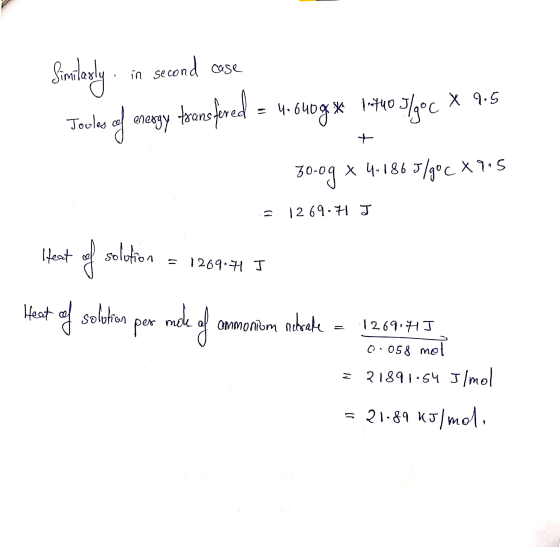 Similarly. in second case
Joules of energy transfered = 4.640g x 1.740 J/g°C X 9.5
+
30.0g x 4.186 J/g°C X 9.5
= 1269.71 J
Heat of solution = 1269.71 J
Heat of solution per mole of ammonium nitrate = 1269.71 J
0.058 mol
= 21891.54 J/mol
= 21.89 KJ/mol.